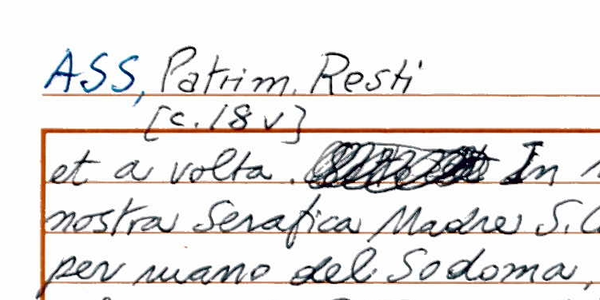 ASS, Patrim. Resti
[c. 18 v]
et a volta. In
nostra Serafica Madre S. C
per mano del Sodoma,